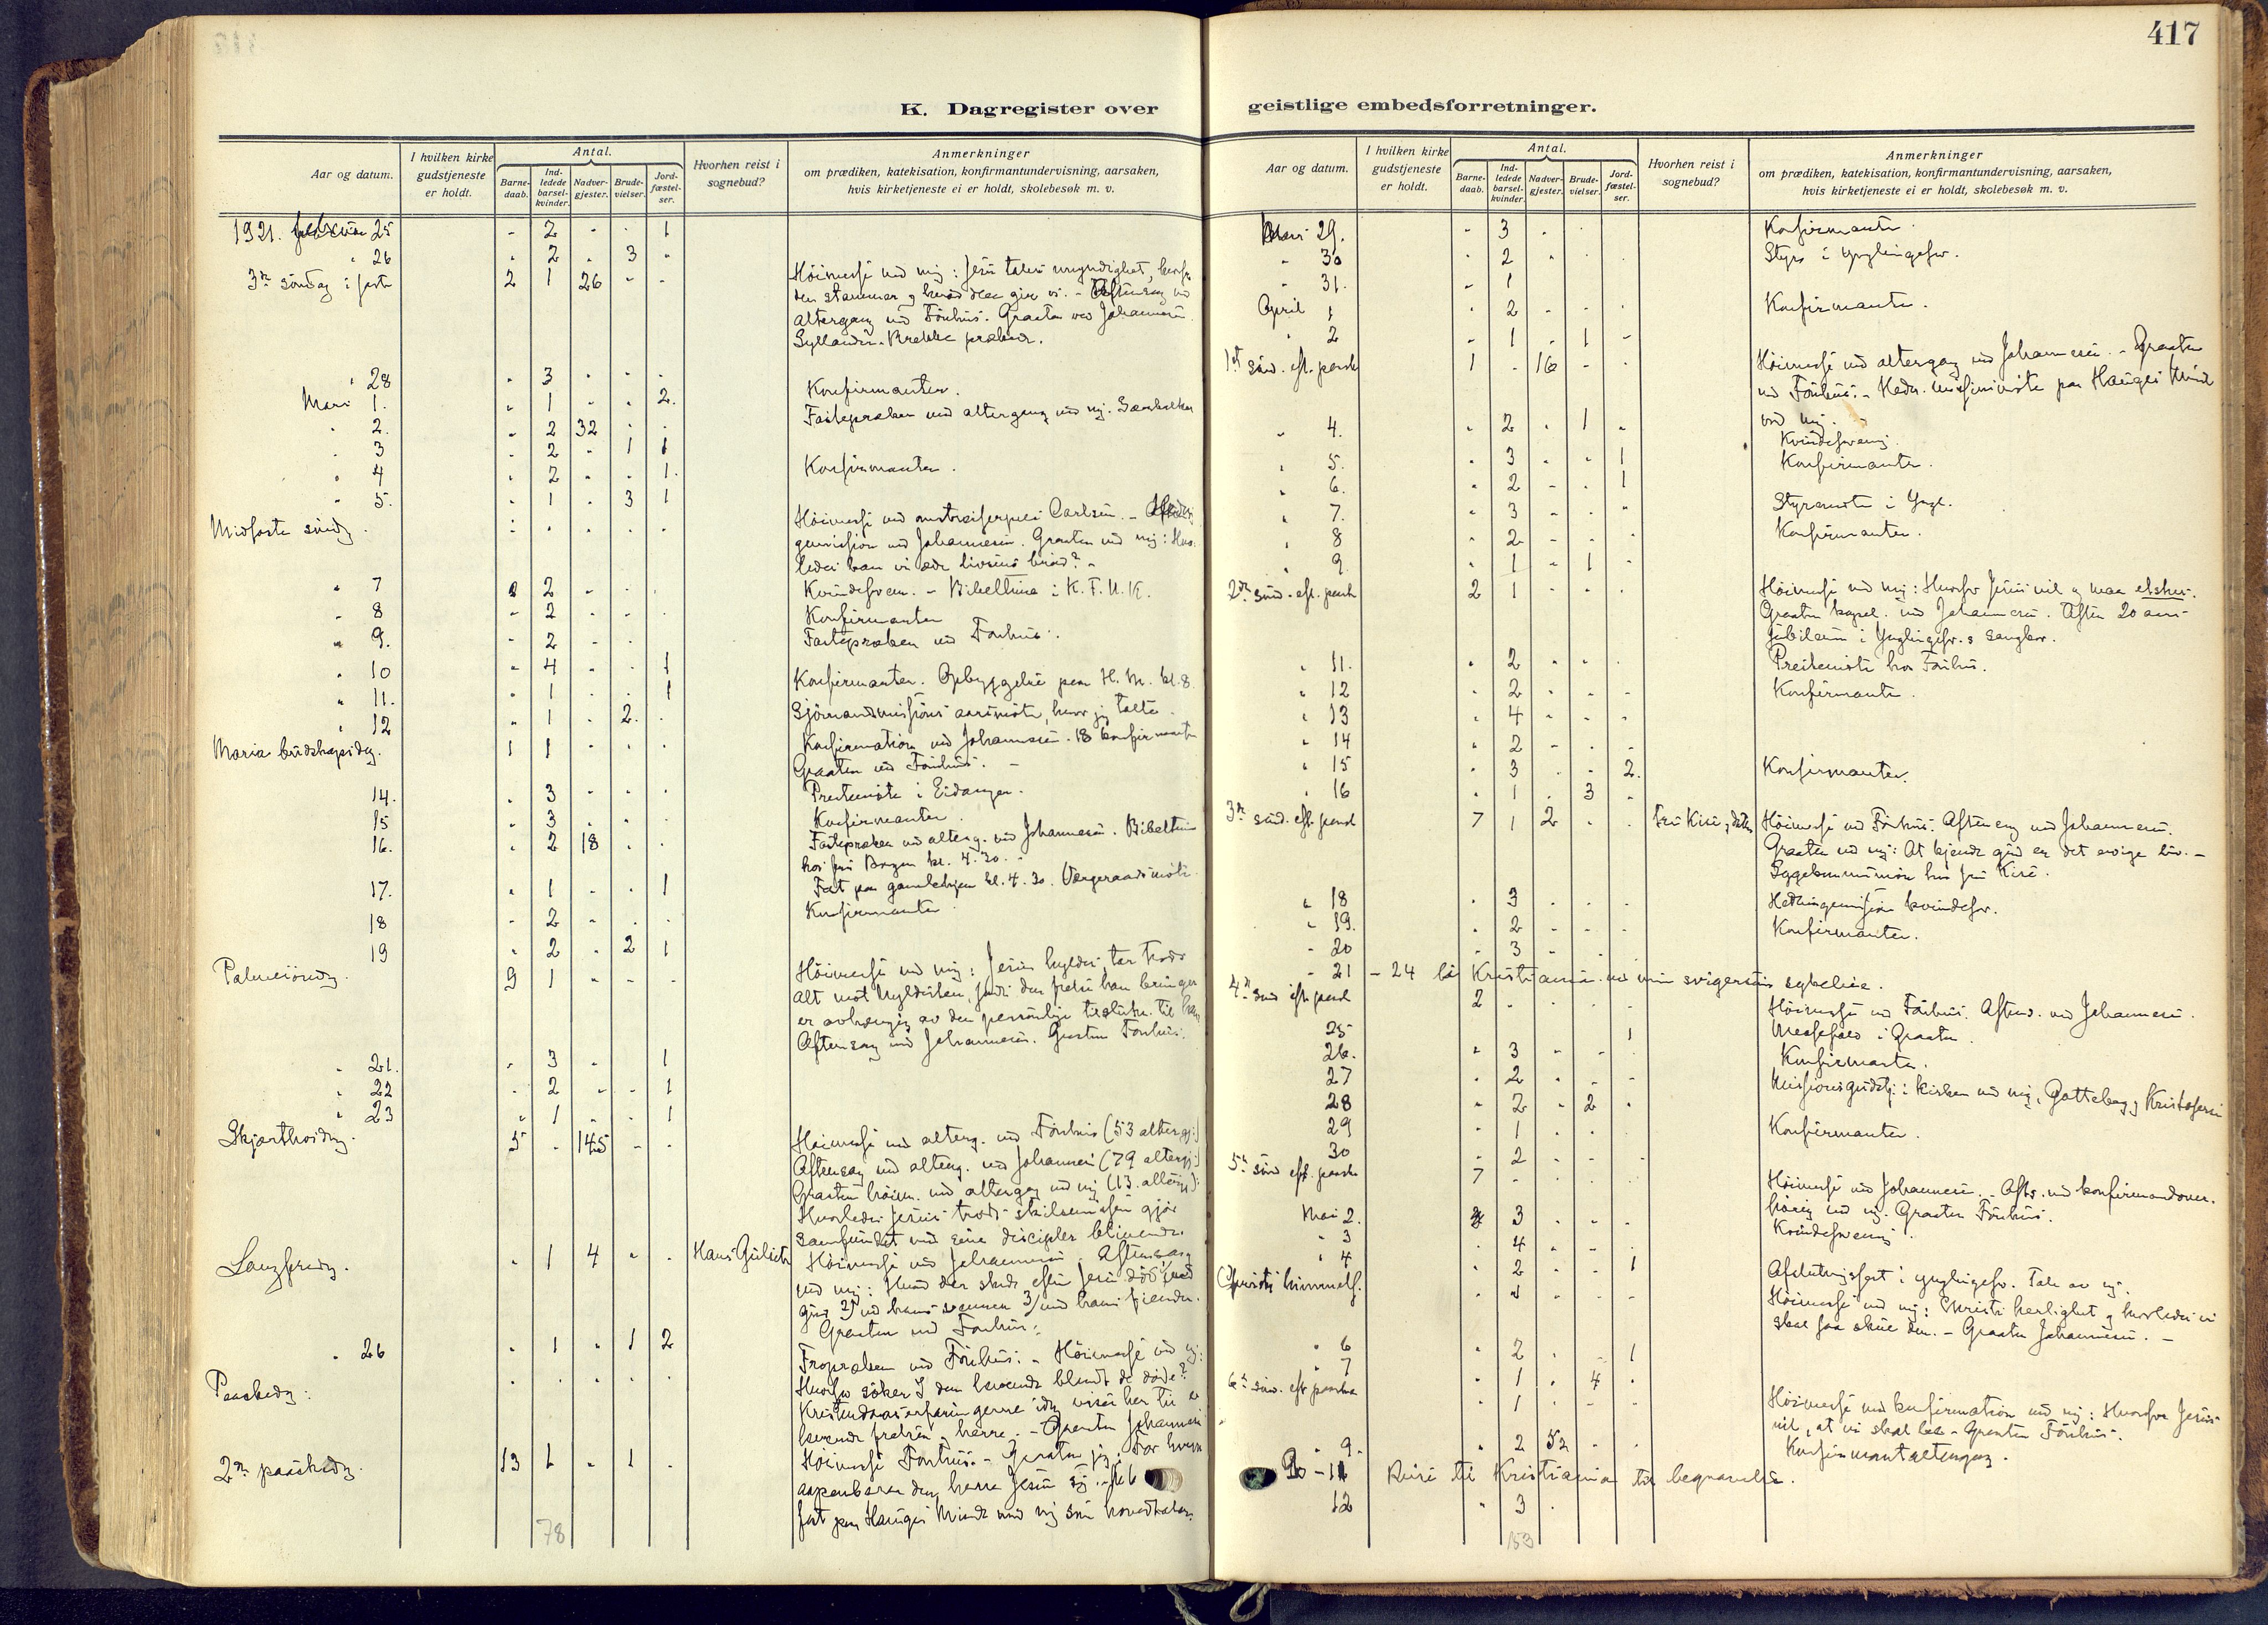 417
K. Dagregister over
Aar og datum.
I hvilken kirke gudstjeneste er holdt.
Antal.
Barne-daab.
Ind-ledede barsel-kvinder.
Nadver-gjester.
Brude-vielser.
Jord-fæstel-ser.
Hvorhen reist i sognebud?
Anmerkninger
om prædiken, katekisation, konfirmantundervisning, aarsaken,
hvis kirketjeneste ei er holdt, skolebesøk m. v.
1921. februar 25 - 2 - - 1
" 26 - 2 - 3 -
3die søndag i faste 2 1 26 - - Høimesse ved mig: Jesu tales myndighet, hvorfra
den stammer og hvad den giver os. - Aftensang med
altergang ved Fonhus. Graaten ved Johannesen
Brekke præken.
" 28 - 3 - - - Konfirmanter.
Mars 1. - 1 - - 2.
" 2. - 2 32 - - Fastepræken med altergang ved mig.
" 3 - 2 - 1 1
" 4 - 2 - - 1. Konfirmanter.
" 5. - 1 - 3 1
Midfaste søndag. Høimesse ved Carlsen. -
ved Johannesen. Graaten ved mig: Hvor-
ledes kan vi æde livsens brød? -
" 7 2 - - Kvindeforen. - Bibeltime i K.F.U.K.
" 8 - 2 - - - Konfirmanter
" 9. - 2 - - Fastepræken ved Fonhus.
" 10 - 4 - - 1 Konfirmanter. Opbyggelse paa H. M. kl. 8.
" 11. - 1 - - 1
" 12 - 1 - 2. - Sjømandsmissions aarsmøte, hvor jeg talte.
Maria budskapsdag. 1 1 - - - Konfirmation ved Johannesen. 18 konfirmanter
Graaten ved Fonhus. -
14. - 3 - - - Prestemøte i Eidanger.
15 - 3 - - - Konfirmanter.
16. - 2 18 - - Fastepræken med alterg. ved Johannesen. Bibeltime
hos fru kl. 4.30. -
17. - 1 - - 1 Fest paa gamlehjem kl. 4.30. Vergeraadsmøte.
18 - 2 - - - Konfirmanter.
19 - 2 - 2 1
Palmesøndag. 9 1 - - - Høimesse ved mig: Jesus hyldes, tar trods
alt mot hyldesten, fordi den frelse han bringer
er avhængig av den personlige tilslutn. til ham
Aftensang ved Johannesen. Graaten Fonhus.
" 21. - 3 - 1
" 22 - 2 - - 1
" 23 - 1 - - 1
Skjærthorsdag. 5 - 145 - - Høimesse med alterg. ved Fonhus (53 altergj.)
Aftensang med alterg. ved Johannesen (79 altergj.)
Graaten høim. med altergang ved mig (13. altergj.):
Hvorledes Jesus trods skilsmissen gjør
samfundet med sine disciple blivende.
Langfredag. - 1 4 - - Hans Høimesse ved Johannesen. Aftensang
ved mig: Hvad der skede efter Jesu død 1) ved
Gud 2) ved hans venner 3) ved hans fiender.
Graaten ved Fonhus.
" 26 - 1 - 1 2
Paaskedag. - - - - - Fropræken ved Fonhus. - Høimesse ved mig:
Hvorfor søker I den levende blandt de døde?
levende frelser og herre. - Graaten Johannesen
2den paaskedag. 13 1 - 1 - Høimesse Fonhus. - Graaten jeg: For hvem
aapenbarer den herre Jesus sig. -
fest paa Hauges Minde med mig som hovedtaler.
78
geistlige embedsforretninger.
Aar og datum.
I hvilken kirke gudstjeneste er holdt.
Antal.
Barne-daab.
Ind-ledede barsel-kvinder.
Nadver-gjester.
Brude-vielser.
Jord-fæstel-ser.
Hvorhen reist i sognebud?
Anmerkninger
om prædiken, katekisation, konfirmantundervisning, aarsaken,
hvis kirketjeneste ei er holdt, skolebesøk m. v.
Mars 29. - 3 - - Konfirmanter.
- 30 - 2 - - - Styre i Ynglingefor.
- 31. - 1
April 1 - 2 - - - Konfirmanter.
" 2 - 1 - 1 -
1st sønd. eft. paaske 1 - 16 - - Høimesse med altergang ved Johannesen. - Graaten
ved Fonhus. - Hedn. missionsmøte paa Hauges Minde
ved mig.
" 4. - 2 - 1 - Kvindeforening.
" 5. - 3 - - 1 Konfirmanter.
" 6. - 2 - - 1
" 7. - 3 - - - Styremøte i Yngl.
" 8 - 2 - - - Konfirmanter.
" 9. - 1 - 1 -
2den sønd. eft. paaske 2 1 - - - Høimesse ved mig: Hvorfor Jesus vil og maa elskes.
Graaten kapel. ved Johannesen. Aften 20 aars-
jubilæum i Ynglingefor.s sangkor.
" 11. - 2 - - - Prestemøte hos Fonhus.
" 12 - 2 - - - Konfirmanter.
" 13 - 4 - - -
" 14 - 2 - - -
" 15 - 3 - - 2. Konfirmanter.
" 16 - 1 - 3 -
3die sønd. eft. paaske 7 1 2 - - fru Høimesse ved Fonhus. Aftensang ved Johannesen.
Graaten ved mig: At kjende Gud er det evige liv. -
Sygekommunion hos fru
" 18 - 3 - - - Hedningemission kvindefor.
" 19. - 2 - - - Konfirmanter.
- 20 - 3 - - -
- 21 - 24 Kristiania ved min svigersøns sykeleie.
4de sønd. eft. paaske 2 - - - - Høimesse ved Fonhus. Aftens. ved Johannesen.
25 1 Messefald i Graaten.
26. - 3 - - - Konfirmanter.
27 - 2 - - -
28 - 2 - 2 - Missionsgudstj. i kirken ved mig, og Kristofersen
29 - 1 - - - Konfirmanter.
30 - 2 - - -
5te sønd. eft. paaske 7 - - - - Høimesse ved Johannesen. - Afts. med konfirmandover-
høring ved mig. Graaten Fonhus.
Mai 2. 3 - - - Kvindeforening.
" 3 - 4 - - -
" 4 - 2 - - 1 Afslutningsfest i Ynglingefor. Tale av mig.
Christi himmelf. - - - - Høimesse ved mig: Christi herlighet og hvorledes vi
skal faa skue den. - Graaten Johannesen. -
" 6 - 2 - - 1
" 7 - 1 - 4 -
6te sønd. eft. paaske - 1 - - - Høimesse med konfirmation ved mig: Hvorfor Jesus
vil, at vi skal - Graaten Fonhus.
" 9. - 2 52 - - Konfirmantaltergang.
10 - 11 Reise til Kristiania til begravelse.
12 - 3 -
53